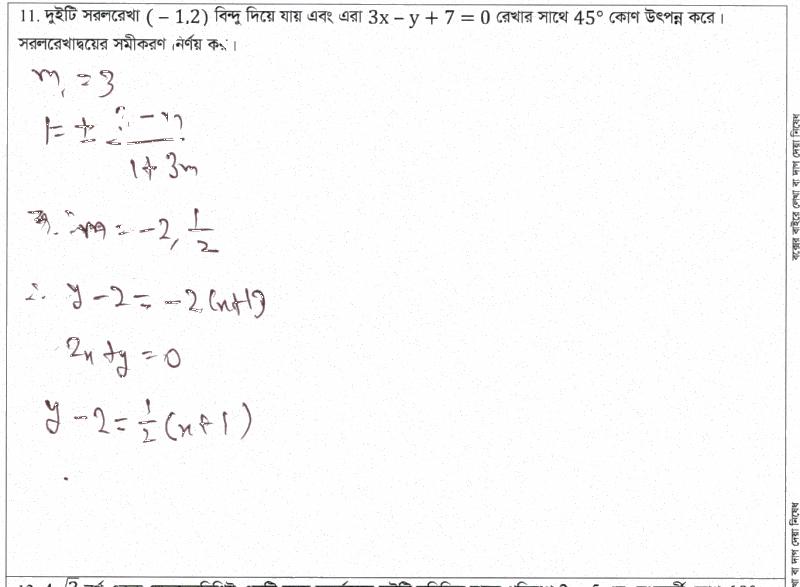 11. দুইটি সরলরেখা (-1,2) বিন্দু দিয়ে যায় এবং এরা 3x-y+7=0 রেখার সাথে 45° কোণ উৎপন্ন করে।
সরলরেখাদ্বয়ের সমীকরণ নির্ণয় কর।
m₁ = 3
1 = ± (3-m)/(1+3m)
m = -2, 1/2
∴ y-2 = -2(x+1)
2x+y = 0
y-2 = 1/2 (x+1)
বক্সের বাইরে লেখা বা দাগ দেয়া নিষেধ
বা দাগ দেয়া নিষেধ